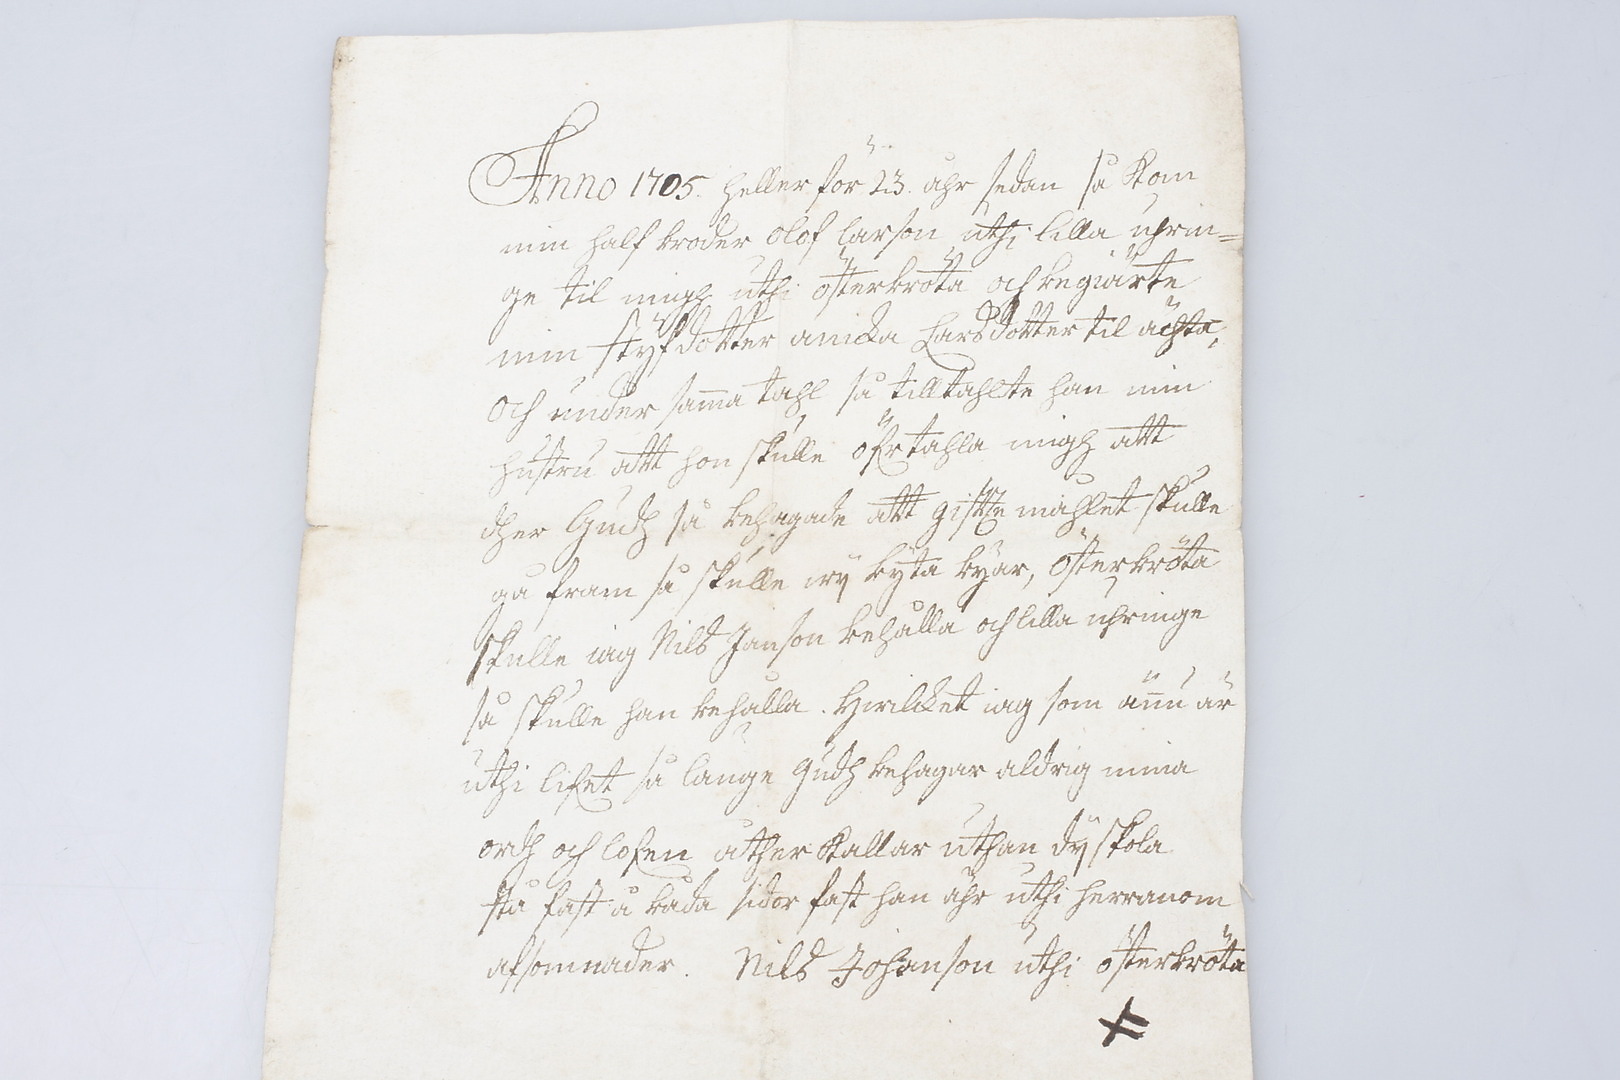 Anno 1705. heller för 23. ahr sedan så kom
min half broder olof larson uthi lilla uhrin=
ge til migh uthi österbröta och begiärte
min styfdotter anicka Larsdotter tilächta,
och under sama tahl så tilltahlte han min
hustru att hon skulle öfertahla migh att
dher Gudh så behagade att giftte måhlet skulle
gå fram så skulle wÿ bÿta bÿar, österbröta
skulle iag Nils Janson behålla och lilla uhringe
så skulle han behålla. Hwilcket iag som ännu är
uthi lifet så länge Gudh behagar aldrig mina
ordh och lofen åtherkallar uthan dÿ skola
stå fast å båda sidor fast han ähr uthi herranom
afsomnader. Nils Johanson uthi österbröta